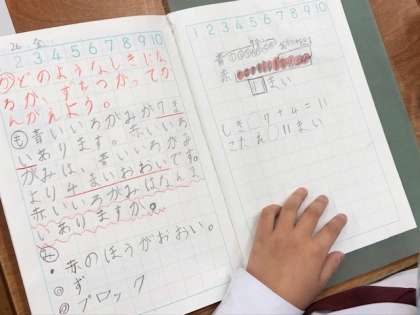 26 金
1 2 3 4 5 6 7 8 9 10
め どのようなしきにな
るか、ずをつかってか
んがえよう。
も 青いいろがみが7ま
いあります。赤いいろ
がみは、青いいろがみ
より4まいおおいです。
赤いいろがみはなんま
いありますか。
み
・赤のほうがおおい。
◎ず
◎ブロック
1 2 3 4 5 6 7 8 9 10
青
赤
まい
しき 7+4=11
こたえ 11まい